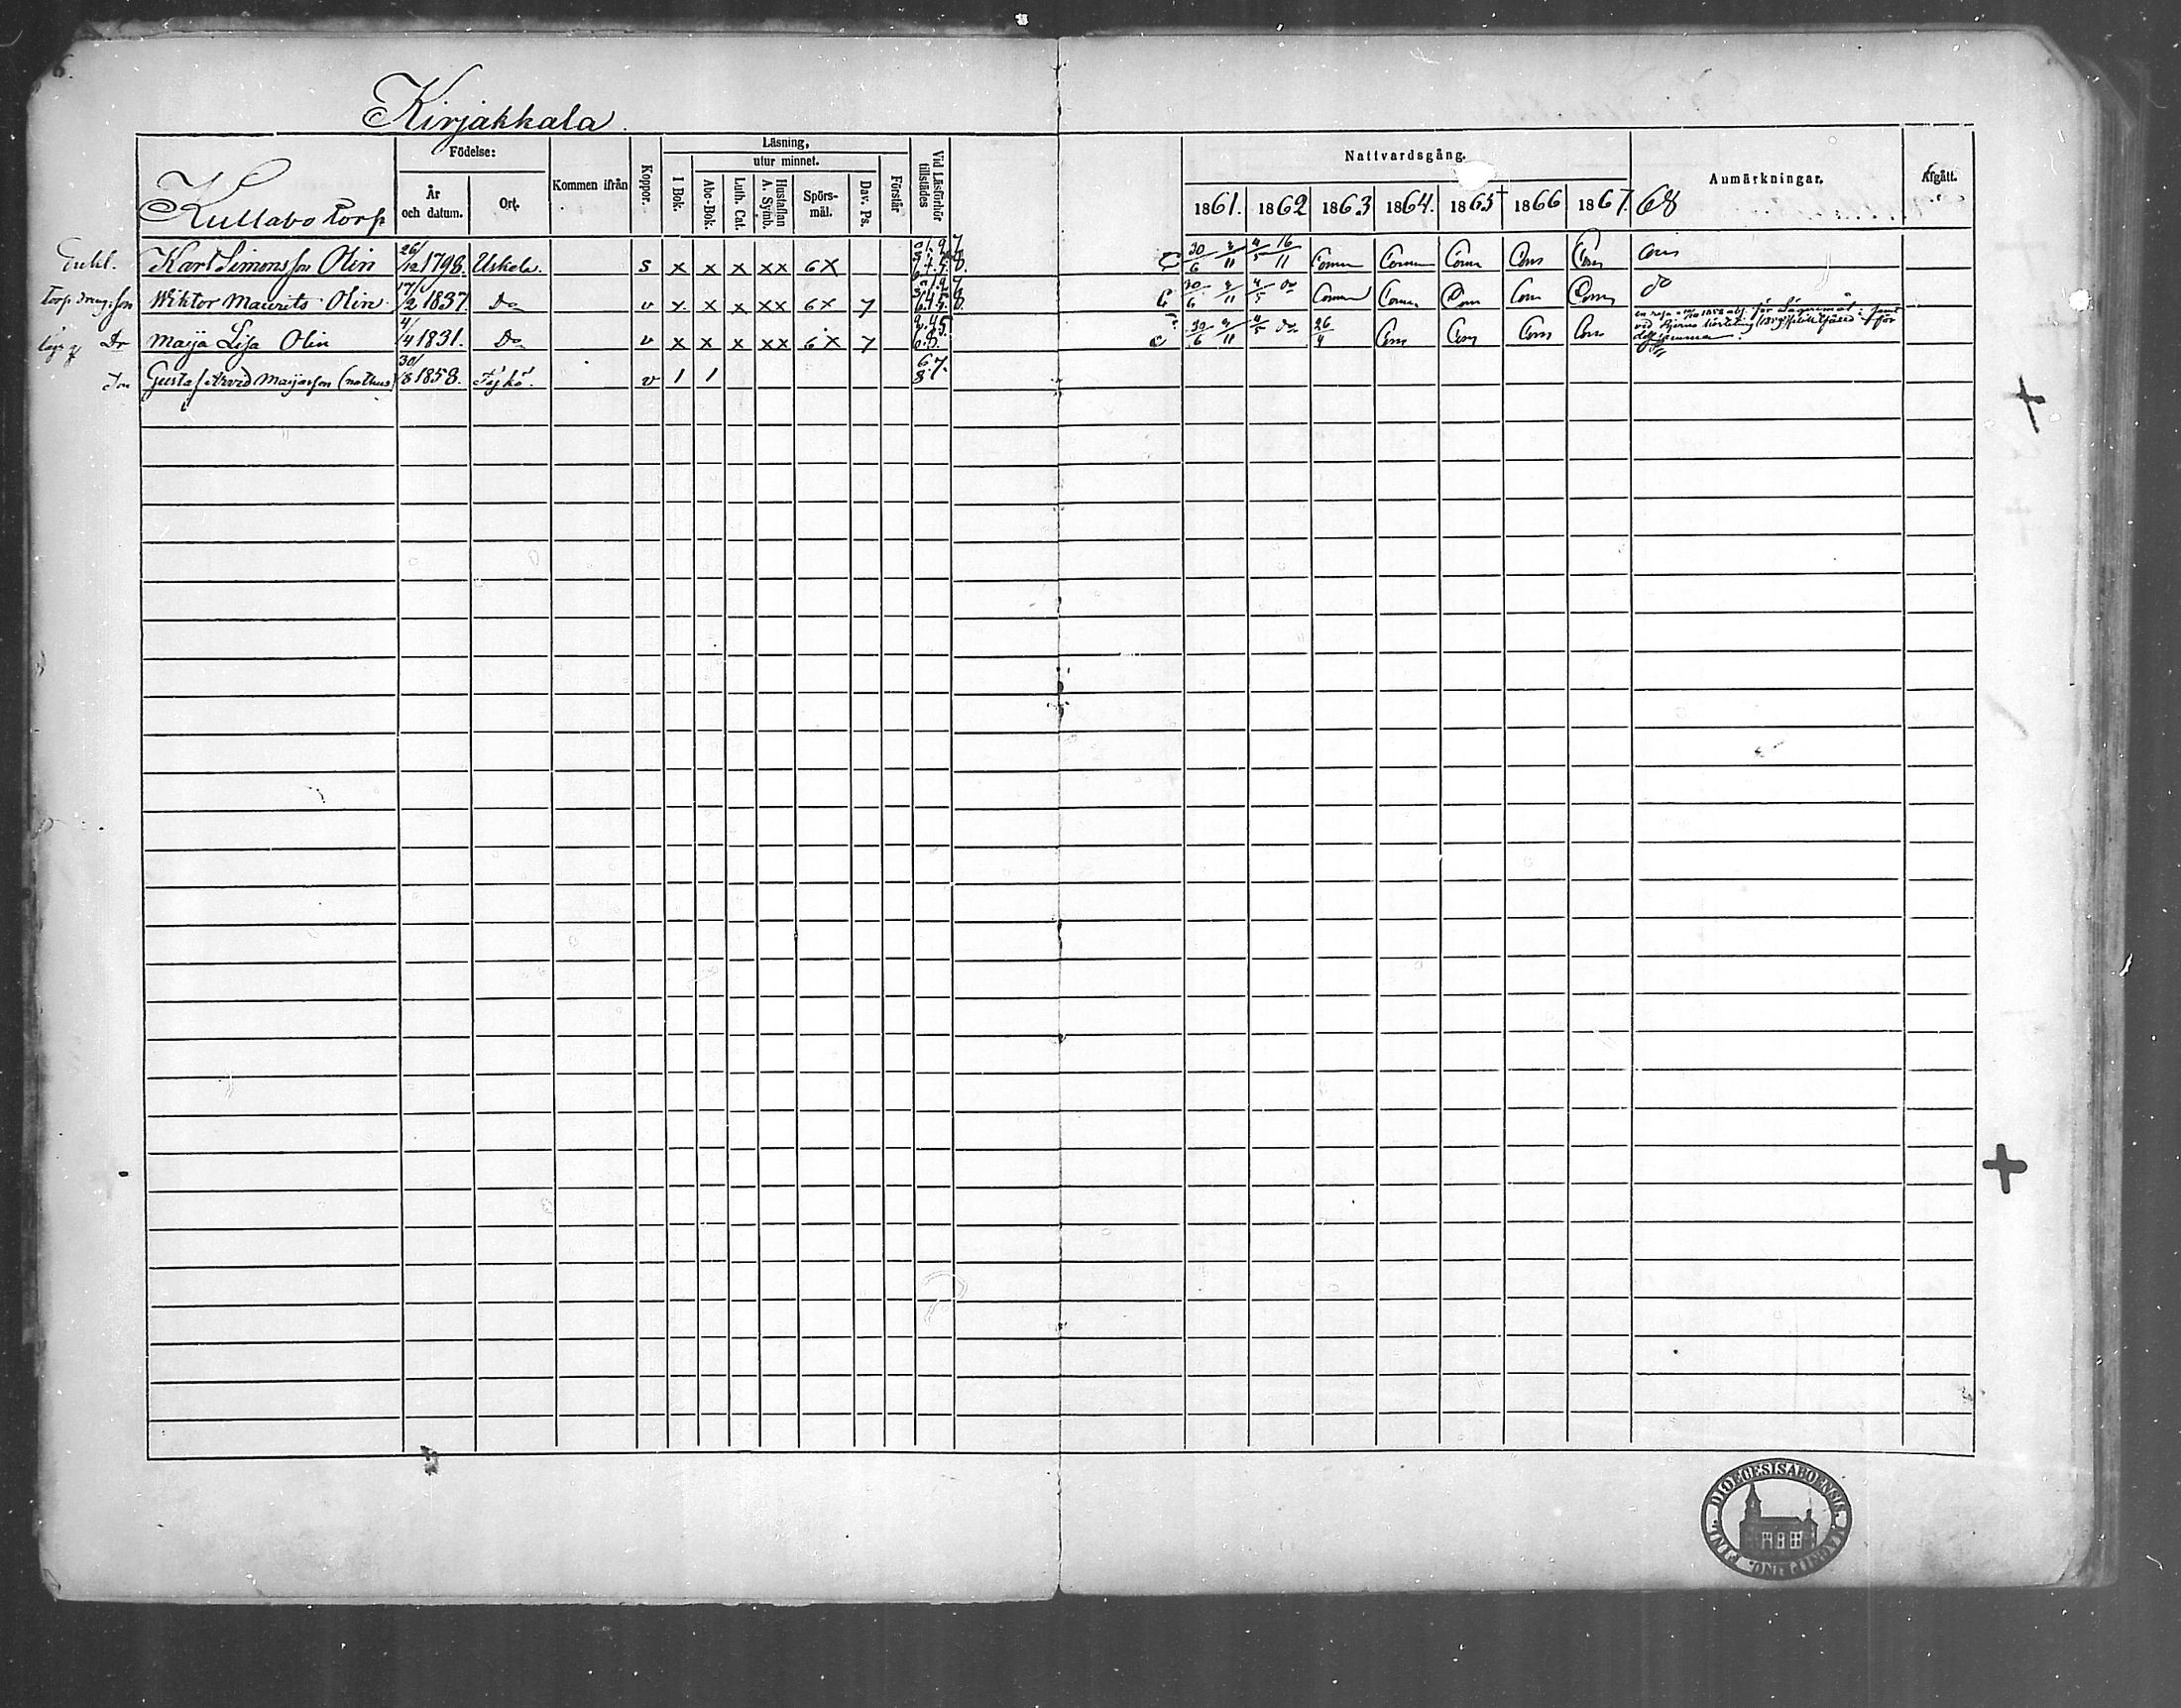 6.
Kirjakkala.
Kullabo Torp
Födelse:
År och datum.
Ort.
Kommen ifrån
Koppor.
Läsning,
utur minnet.
I Bok.
Abc-Bok.
Luth. Cat.
Hustaflan A. Symb.
Spörs-mål.
Dav. Ps.
Förstår
Vid Läsförhör tillstädes
Nattvardsgång.
1861. 1862 1863 1864. 1865 1866 1867. 68
Anmärkningar.
Afgått.
Enkl. Karl Simonsson Olin 26/12 1798. Uskela. s x x x xx 6x C 30/6 11 4/5 16/11 Comm Comm Comm Com Com com
son Wiktor Maurits Olin 17/2 1837. Do v x x x xx 6x 7 C 30/6 11 4/5 do Comm Comm Com Com Com do
Dr Maija Lisa Olin 4/4 1831. Do v x x x xx 6x 7 c 30/6 11 4/5 do 26/4 Com Com Com Com
Son Gustaf Arvid Maijasson (nothus) 30/8 1858. v 1 1 6.7. 8
DIOECESIS ABOENSIS MAGNI PRINC. FINL.